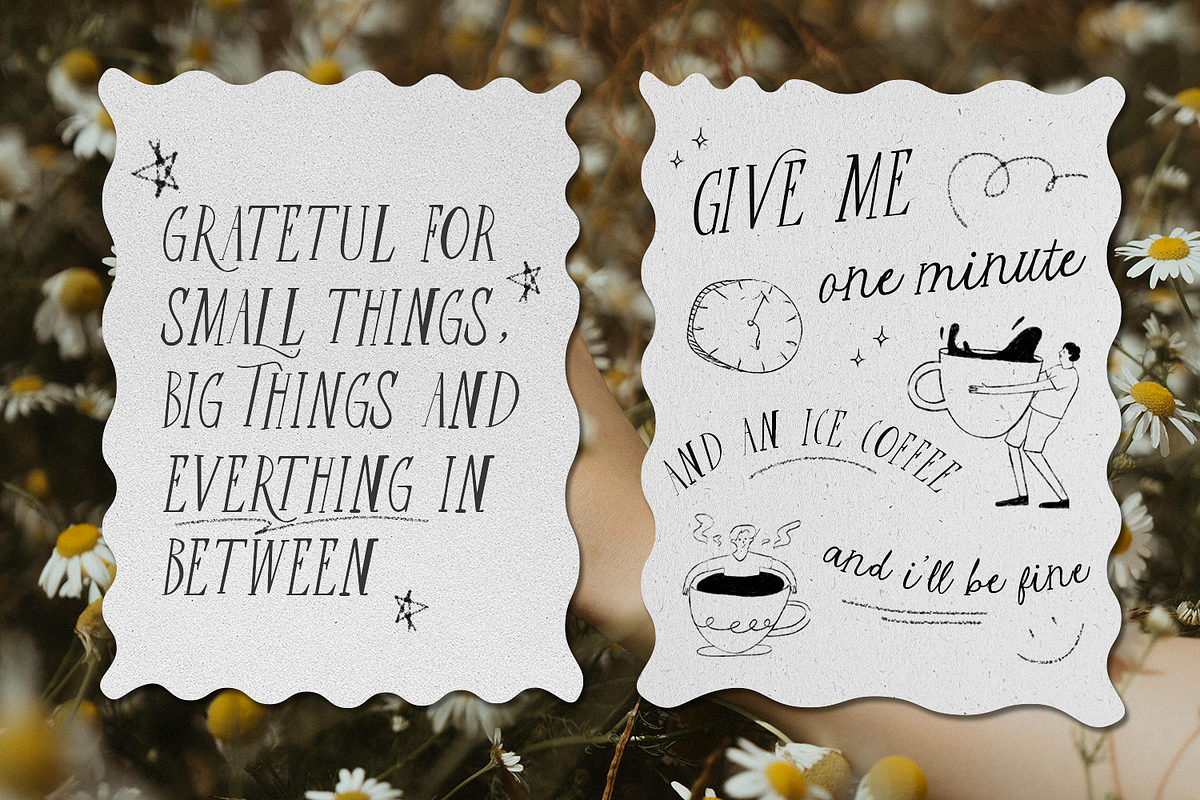 GRATEFUL FOR
SMALL THINGS,
BIG THINGS AND
EVERTHING IN
BETWEEN
GIVE ME
one minute
AND AN ICE COFFEE
and i'll be fine